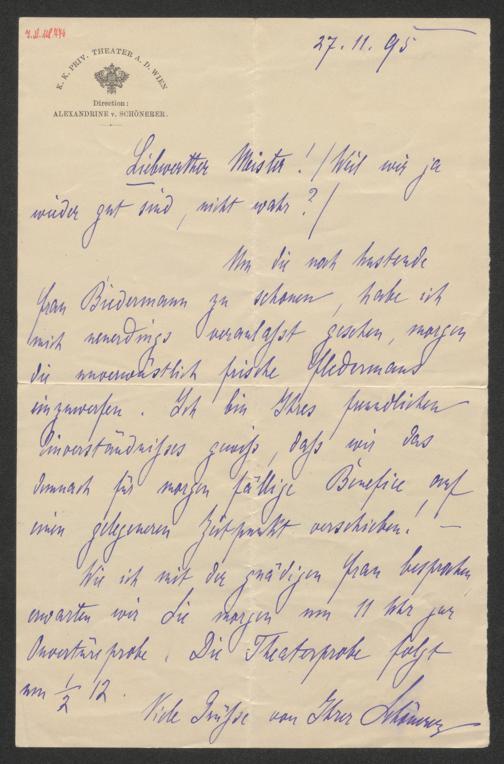 27.11.95
K. K. PRIV. THEATER A. D. WIEN
Direction:
ALEXANDRINE v. SCHÖNERER.
Liebwerther Meister! /Weil wir ja
wieder gut sind, nicht wahr?/
Um die noch hustende
Frau Biedermann zu schonen, habe ich
mich neuerdings veranlaßt gesehen, morgen
die unverwüstlich frische Fledermaus
einzuwerfen. Ich bin Ihres freundlichen
Einverständnißes gewiß, daß wir das
demnach für morgen fällige Benefice auf
einen gelegeneren Zeitpunkt verschieben! —
Wie ich mit der gnädigen Frau besprochen,
erwarten wir Sie morgen um 11 Uhr zur
Ouvertüreprobe. Die Theaterprobe folgt
um ½ 12.
Viele Grüße von Ihrer Schönerer